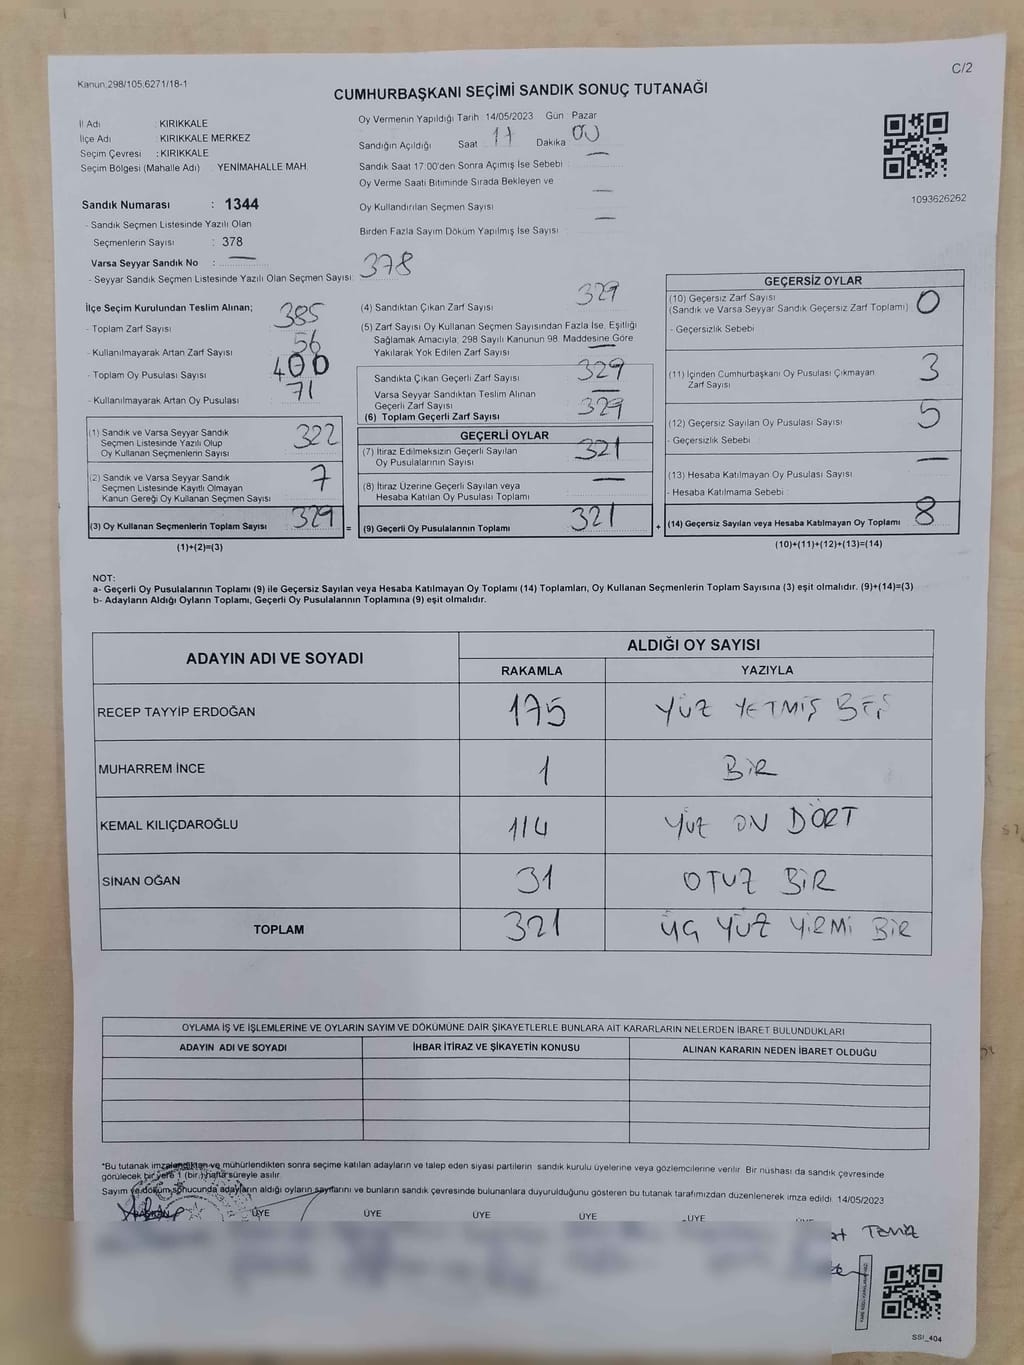 Kanun,298/105,6271/18-1
C/2
CUMHURBAŞKANI SEÇİMİ SANDIK SONUÇ TUTANAĞI
İl Adı : KIRIKKALE
İlçe Adı : KIRIKKALE MERKEZ
Seçim Çevresi : KIRIKKALE
Seçim Bölgesi (Mahalle Adı) YENİMAHALLE MAH.
Oy Vermenin Yapıldığı Tarih 14/05/2023 Gün Pazar
Sandığın Açıldığı Saat 17 Dakika 00
Sandık Saat 17:00'den Sonra Açımış İse Sebebi —
Oy Verme Saati Bitiminde Sırada Bekleyen ve
Oy Kullandırılan Seçmen Sayısı —
Birden Fazla Sayım Döküm Yapılmış İse Sayısı —
1093626262
Sandık Numarası : 1344
- Sandık Seçmen Listesinde Yazılı Olan
Seçmenlerin Sayısı : 378
Varsa Seyyar Sandık No : —
- Seyyar Sandık Seçmen Listesinde Yazılı Olan Seçmen Sayısı: 378
İlçe Seçim Kurulundan Teslim Alınan;
- Toplam Zarf Sayısı 385
- Kullanılmayarak Artan Zarf Sayısı 56
- Toplam Oy Pusulası Sayısı 400
- Kullanılmayarak Artan Oy Pusulası 71
(1) Sandık ve Varsa Seyyar Sandık
Seçmen Listesinde Yazılı Olup
Oy Kullanan Seçmenlerin Sayısı 322
(2) Sandık ve Varsa Seyyar Sandık
Seçmen Listesinde Kayıtlı Olmayan
Kanun Gereği Oy Kullanan Seçmen Sayısı 7
(3) Oy Kullanan Seçmenlerin Toplam Sayısı 329 =
(1)+(2)=(3)
(4) Sandıktan Çıkan Zarf Sayısı 329
(5) Zarf Sayısı Oy Kullanan Seçmen Sayısından Fazla İse, Eşitliği
Sağlamak Amacıyla, 298 Sayılı Kanunun 98. Maddesine Göre
Yakılarak Yok Edilen Zarf Sayısı —
Sandıkta Çıkan Geçerli Zarf Sayısı 329
Varsa Seyyar Sandıktan Teslim Alınan
Geçerli Zarf Sayısı —
(6) Toplam Geçerli Zarf Sayısı 329
GEÇERLİ OYLAR
(7) İtiraz Edilmeksizin Geçerli Sayılan
Oy Pusulalarının Sayısı 321
(8) İtiraz Üzerine Geçerli Sayılan veya
Hesaba Katılan Oy Pusulası Toplamı —
(9) Geçerli Oy Pusulalarının Toplamı 321 +
GEÇERSİZ OYLAR
(10) Geçersiz Zarf Sayısı
(Sandık ve Varsa Seyyar Sandık Geçersiz Zarf Toplamı) 0
- Geçersizlik Sebebi
(11) İçinden Cumhurbaşkanı Oy Pusulası Çıkmayan
Zarf Sayısı 3
(12) Geçersiz Sayılan Oy Pusulası Sayısı 5
- Geçersizlik Sebebi
(13) Hesaba Katılmayan Oy Pusulası Sayısı —
- Hesaba Katılmama Sebebi :
(14) Geçersiz Sayılan veya Hesaba Katılmayan Oy Toplamı 8
(10)+(11)+(12)+(13)=(14)
NOT:
a- Geçerli Oy Pusulalarının Toplamı (9) ile Geçersiz Sayılan veya Hesaba Katılmayan Oy Toplamı (14) Toplamları, Oy Kullanan Seçmenlerin Toplam Sayısına (3) eşit olmalıdır. (9)+(14)=(3)
b- Adayların Aldığı Oyların Toplamı, Geçerli Oy Pusulalarının Toplamına (9) eşit olmalıdır.
ADAYIN ADI VE SOYADI ALDIĞI OY SAYISI
RAKAMLA YAZIYLA
RECEP TAYYİP ERDOĞAN 175 YÜZ YETMİŞ BEŞ
MUHARREM İNCE 1 BİR
KEMAL KILIÇDAROĞLU 114 YÜZ ON DÖRT
SİNAN OĞAN 31 OTUZ BİR
TOPLAM 321 ÜÇ YÜZ YİRMİ BİR
OYLAMA İŞ VE İŞLEMLERİNE VE OYLARIN SAYIM VE DÖKÜMÜNE DAİR ŞİKAYETLERLE BUNLARA AİT KARARLARIN NELERDEN İBARET BULUNDUKLARI
ADAYIN ADI VE SOYADI İHBAR İTİRAZ VE ŞİKAYETİN KONUSU ALINAN KARARIN NEDEN İBARET OLDUĞU
*Bu tutanak imzalandıktan ve mühürlendikten sonra seçime katılan adayların ve talep eden siyasi partilerin sandık kurulu üyelerine veya gözlemcilerine verilir. Bir nüshası da sandık çevresinde
görülecek bir yere 1 (bir) hafta süreyle asılır.
Sayım ve döküm sonucunda adayların aldığı oyların sayılarını ve bunların sandık çevresinde bulunanlara duyurulduğunu gösteren bu tutanak tarafımızdan düzenlenerek imza edildi. 14/05/2023
BAŞKAN ÜYE ÜYE ÜYE ÜYE ÜYE
SSI_404